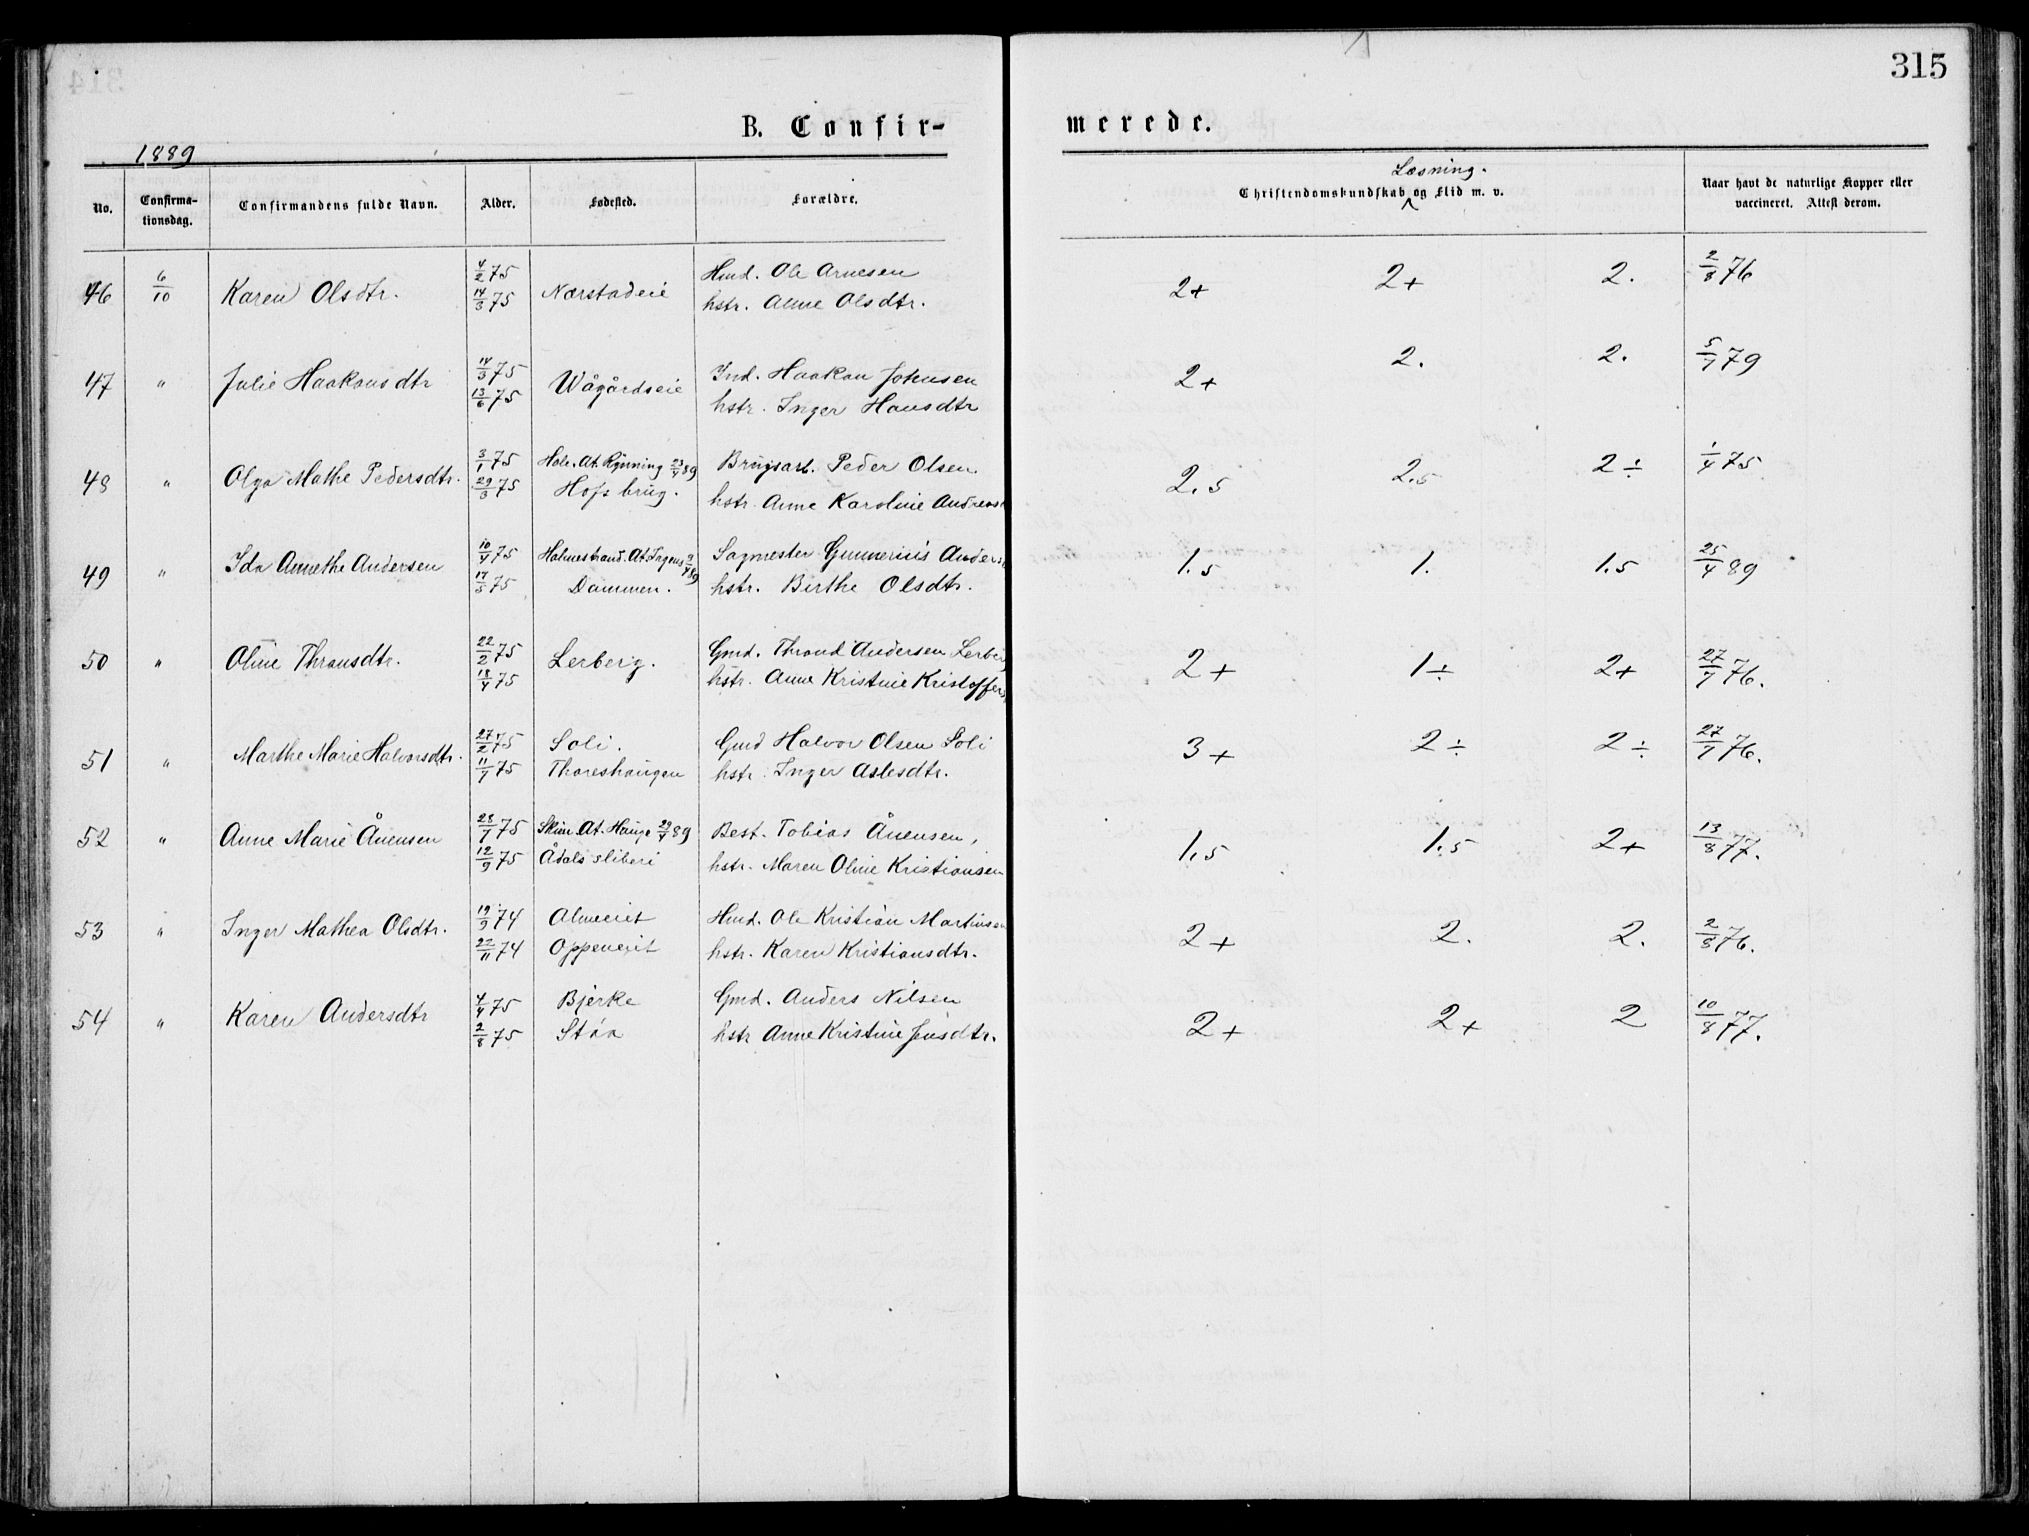 315
B. Confir-
merede.
1889
No.
Confirma-
tionsdag.
Confirmandens fulde Navn.
Alder.
Fødested.
Forældre.
Læsning.
Christendomskundskab og Flid m. v.
Naar havt de naturlige Kopper eller
vaccineret. Attest derom.
46 6/10 Karen Olsdtr. 4/2 75 14/3 75 Nærstadeie
Hmd. Ole Arnesen
hstr. Anne Olsdtr.
2+ 2+ 2. 2/8 76
47 " Julie Haakonsdtr 14/3 75 13/6 75 Vågårdseie
Ind. Haakon Johnsen
hstr. Inger Hansdtr
2+ 2. 2. 5/7 79
48 " Olga Mathe Pedersdtr. 3/1 75 29/3 75
Hole. At. Rynning 23/4 89
Hofs brug.
Brugsarb. Peder Olsen
hstr. Anne Karoline
2.5 2.5 2÷ 1/4 75
49 " Ida Annethe Andersen 10/4 75 17/5 75
Holmestrand. At.
Dammen.
Sagmester Gunnerius
hstr. Birthe Olsdtr.
1.5 1. 1.5 25/4 89
50 " Oline Thronsdtr. 22/2 75 18/4 75 Lerberg.
Gmd. Thrond Andersen
hstr. Anne Kristine
2+ 1÷ 2+ 27/7 76.
51 " Marthe Marie Halvorsdtr. 27/2 75 11/7 75
Soli.
Thoreshaugen
Gmd Halvor Olsen Soli
hstr. Inger Aslesdtr.
3+ 2÷ 2÷ 27/7 76.
52 " Anne Marie Ånensen 28/7 75 12/9 75
At. Hauge 29/4 89
Ådals sliberi
Best. Tobias Ånensen,
hstr. Maren Oline Kristiansen
1,5 1.5 2+ 13/8 77.
53 " Inger Mathea Olsdtr. 19/9 74 22/11 74
Almeeiet
Oppeneiet
Hmd. Ole Kristian Martinsen
hstr. Karen Kristiansdtr.
2+ 2. 2. 2/8 76.
54 " Karen Andersdtr 4/4 75 2/8 75
Bjerke
Støa
Gmd. Anders Nilsen
hstr Anne Kristine Jensdtr.
2+ 2+ 2 10/8 77.